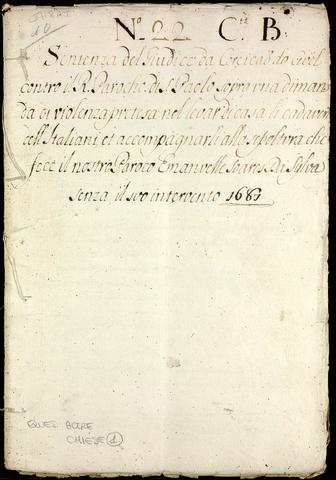 10
N.º 22 C.ta B.
Sentenza del Giudice da Coreicaõ do Civel
contro il R. Paracho di S. Paolo sopra una diman
da di violenza pretesa nel levar di casa li cadaveri
dell'Italiani et accompagnarli alla sepoltura che
fece il nostro Paroco Emanuelle Soares Da Sylva
senza il suo intervento 1681
ALTRE
CHIESE 1